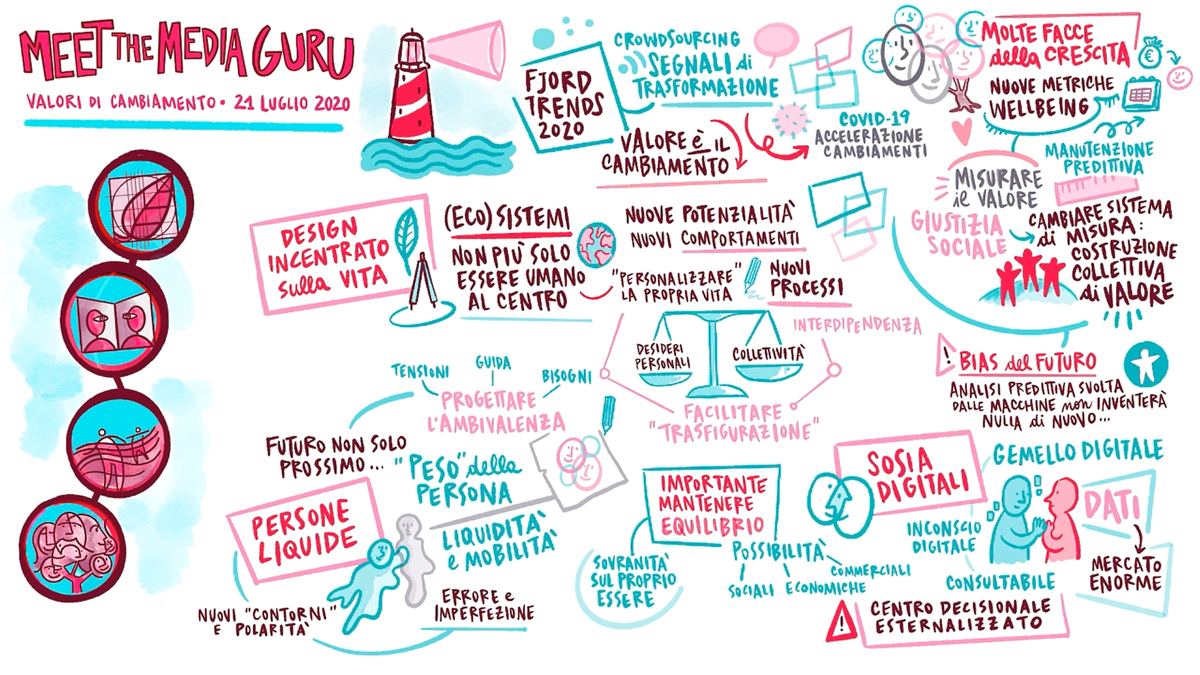 MEET THE MEDIA GURU
VALORI DI CAMBIAMENTO • 21 LUGLIO 2020
FJORD
TRENDS
2020
CROWDSOURCING
SEGNALI di
TRASFORMAZIONE
VALORE è IL
CAMBIAMENTO
COVID-19
ACCELERAZIONE
CAMBIAMENTI
MOLTE FACCE
della CRESCITA
NUOVE METRICHE
WELLBEING
MANUTENZIONE
PREDITTIVA
MISURARE
il VALORE
GIUSTIZIA
SOCIALE
CAMBIARE SISTEMA
di MISURA:
COSTRUZIONE
COLLETTIVA
di VALORE
DESIGN
INCENTRATO
sulla VITA
(ECO)SISTEMI
NON PIÙ SOLO
ESSERE UMANO
AL CENTRO
NUOVE POTENZIALITÀ
NUOVI COMPORTAMENTI
"PERSONALIZZARE"
LA PROPRIA VITA
NUOVI
PROCESSI
INTERDIPENDENZA
DESIDERI
PERSONALI
COLLETTIVITÀ
FACILITARE
"TRASFIGURAZIONE"
! BIAS del FUTURO
ANALISI PREDITTIVA SVOLTA
DALLE MACCHINE non INVENTERÀ
NULLA di NUOVO...
TENSIONI
GUIDA
BISOGNI
PROGETTARE
L'AMBIVALENZA
FUTURO NON SOLO
PROSSIMO...
"PESO" della
PERSONA
PERSONE
LIQUIDE
LIQUIDITÀ
e MOBILITÀ
NUOVI "CONTORNI"
E POLARITÀ
ERRORE e
IMPERFEZIONE
IMPORTANTE
MANTENERE
EQUILIBRIO
SOVRANITÀ
SUL PROPRIO
ESSERE
POSSIBILITÀ
SOCIALI
ECONOMICHE
COMMERCIALI
SOSIA
DIGITALI
GEMELLO DIGITALE
INCONSCIO
DIGITALE
CONSULTABILE
DATI
MERCATO
ENORME
! CENTRO DECISIONALE
ESTERNALIZZATO